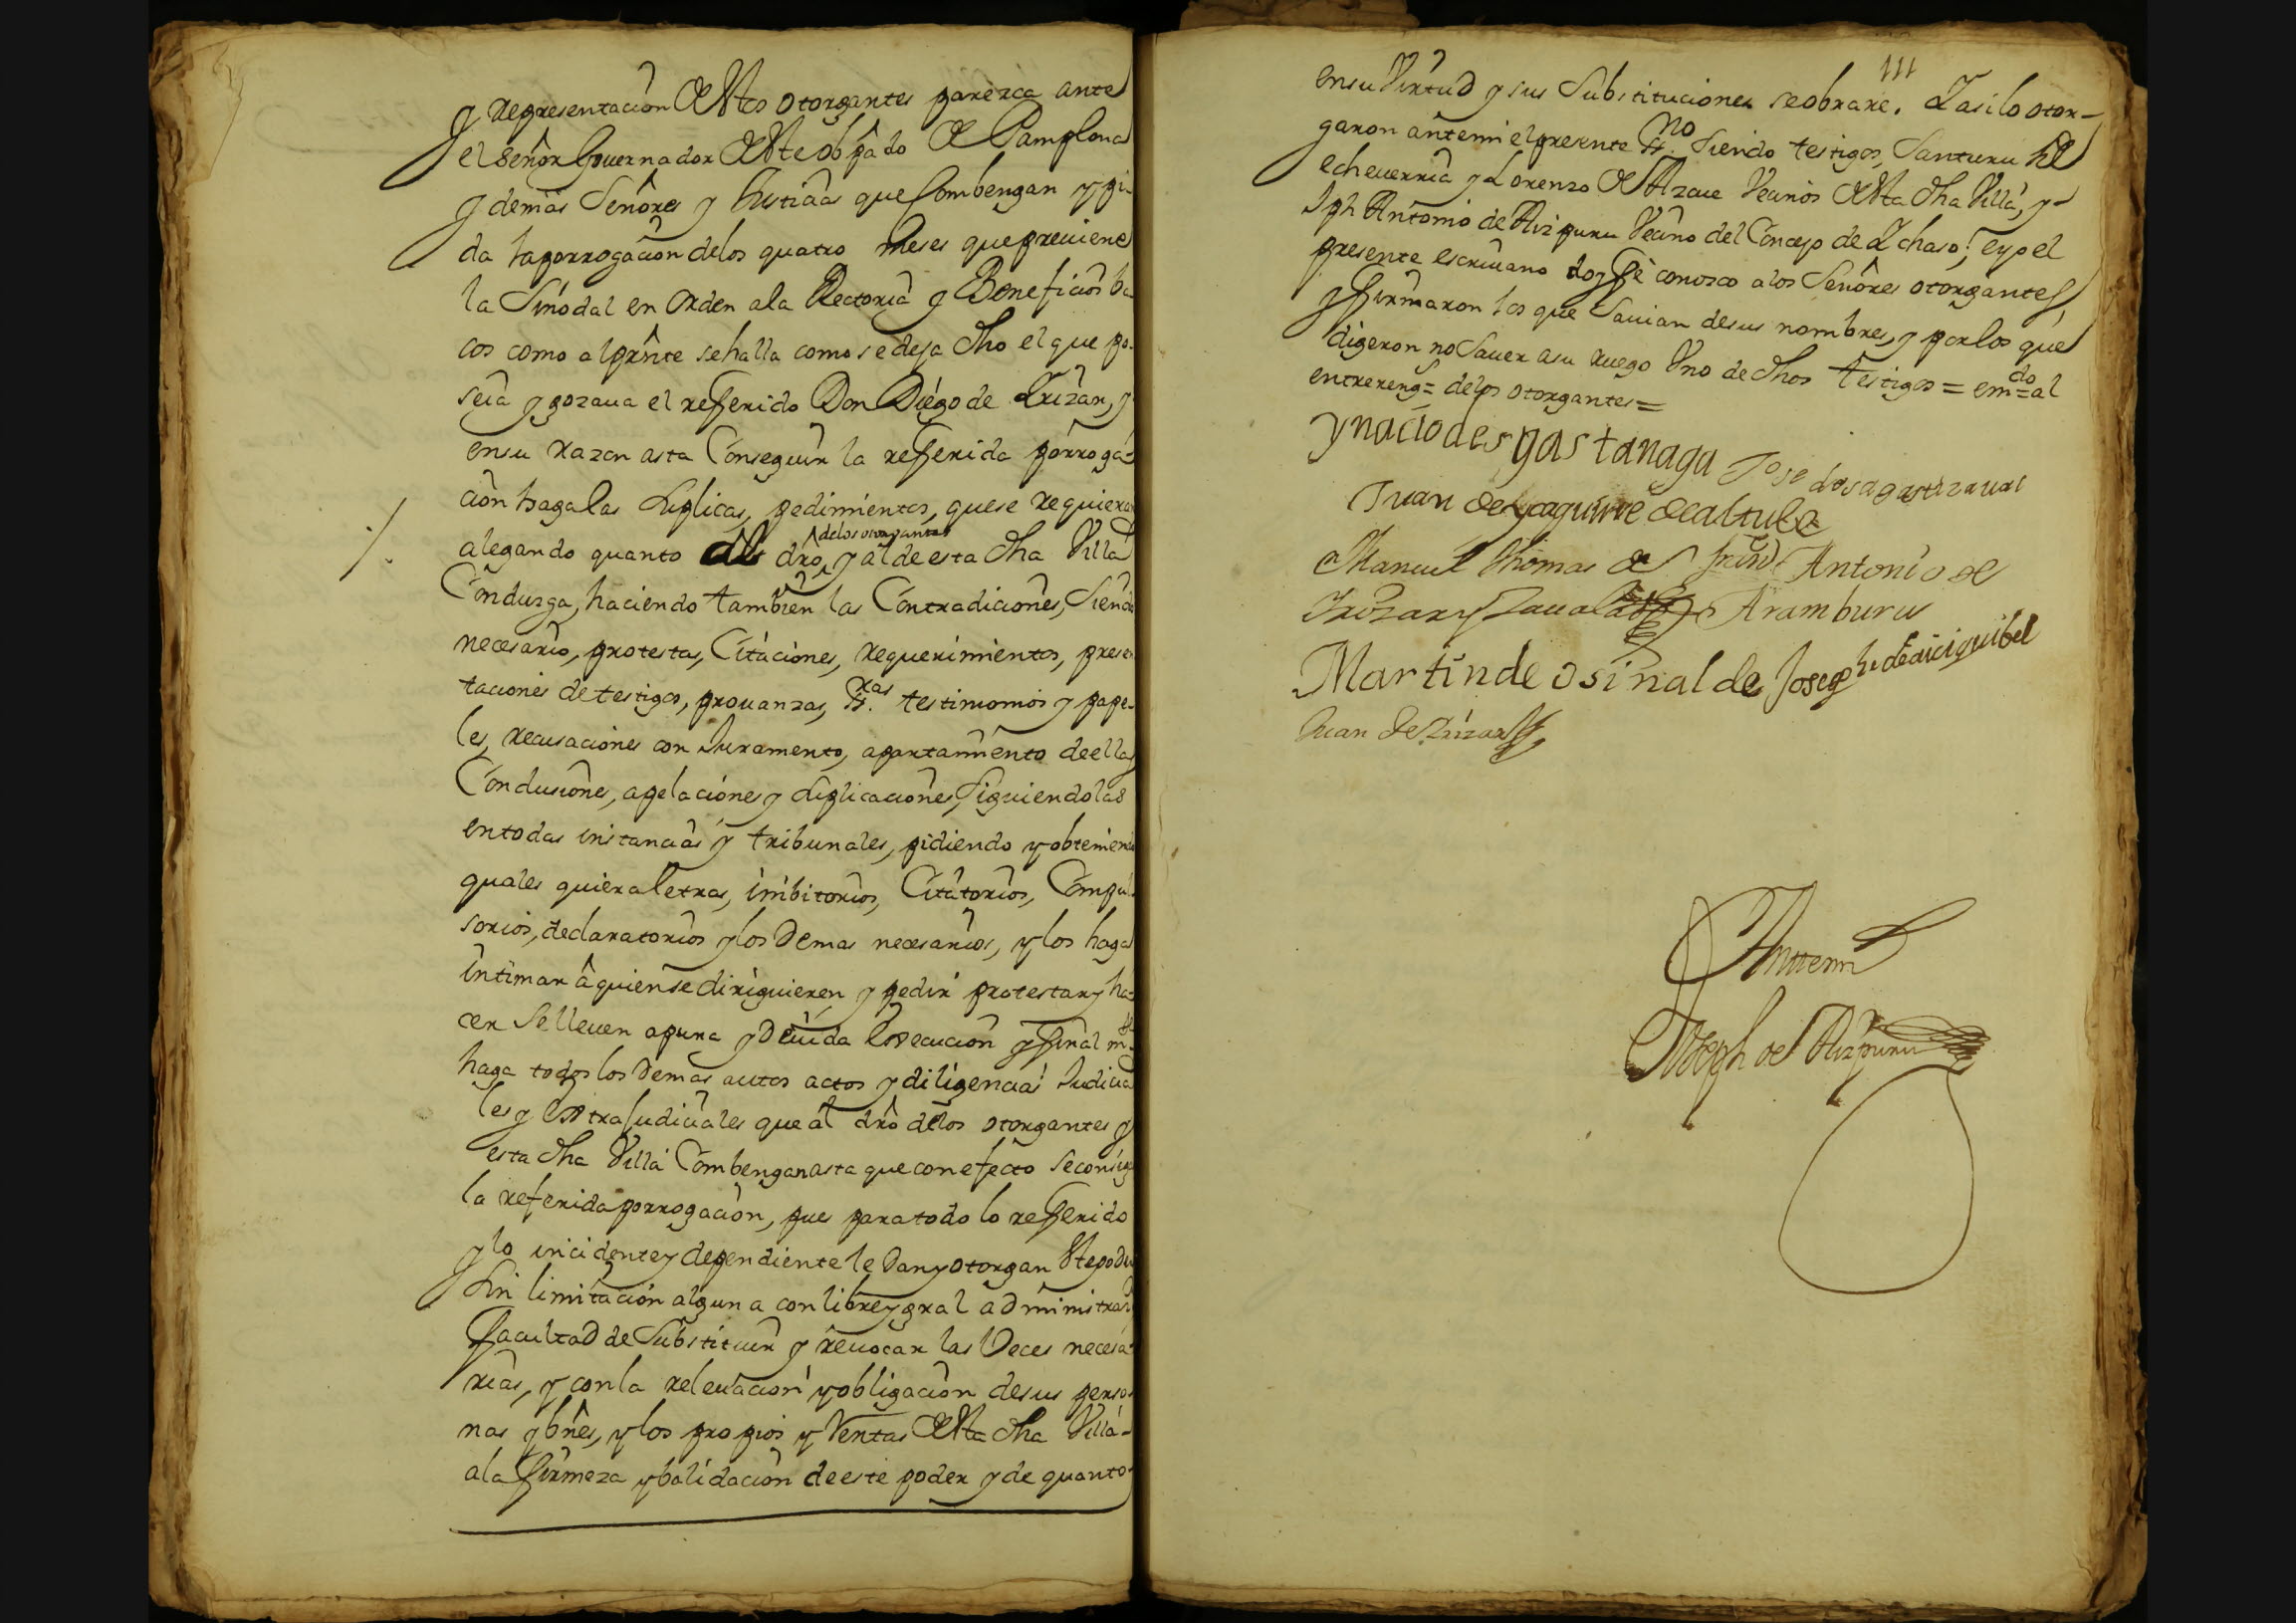 y representaciôn destos otorgantes parezca ante
el señor Governador deste obpâdo de Pamplona
y demas Señores y Justicias que Combengan y pi-
da la porrogaciôn delos quatro meses que previene
la Sinodal en orden ala Rectoria y Beneficios ba
cos como al prêste se halla como se deja dho el que po-
seia y gozava el referido Don Diego de Irizar, y
en su razon asta Conseguir la referida porroga-
ciôn haga las suplicas, pedimientos, que se requieran
alegando quanto al drô, y al de esta dha Villa
delos otorgantes
Conduzga, haciendo tambien las Contradiciones, Siendo
necesario, protestas, Citaciones, requerimientos, presen
taciones de testigos, provanzas, ss.ras testimonios y pape-
les, recusaciones con Juramento, apartamiento de ellas
Conclusiones, apelaciones y suplicaciones, siguiendolas
en todas instancias y tribunales, pidiendo y obteniendo
quales quiera letras, inibitorios, Citatorios, Compul
sorios, declaratorios y los demas necesarios, y los haga
intimar â quien se dirigieren, y pedir protestar y ha-
cer se lleven a pura y devida Execuciôn y final m.te
haga todos los demas autos actos y diligencias Judicia
les y Extrajudiciales que al drô delos otorgantes y
esta dha Villa Combengan asta que con efecto se consiga
la referida porrogaciôn, pues para todo lo referido
y lo incidente y dependiente le dan y otorgan este poder
sin limitaciôn alguna con libre y gral administraon
facultad de Substituir y revocar las veces necesa-
rias, y con la relevaciôn y obligaciôn de sus perso-
nas y bnês, y los propios y Rentas desta dha Villa-
a la firmeza y balidaciôn de este poder y de quanto
111
en su Virtud y sus Substituciones se obrare. Y asi lo otor-
garon ante mi el presente ss.no Siendo testigos, Santuru de
echeverria y Lorenzo de Alzave Vecinos desta dha Villa, y
Jph Antonio de Aizpuru Vecino del Concejo de Ychaso; e yo el
presente escrivano doy fè conosco a los Señores otorgantes,
y firmaron los que Savian de sus nombres, y por los que
digeron no Saver a su ruego Uno de dhos testigos = em.do = al
entrereng.s = delos otorgantes =
ynacio de s gastanaga
Juan de yzaguirre de altube
Manuel Thomas de
Irizar y Zavala
Antonio de
Aramburu
Martin de osinalde
Joseph de aiciquibel
Juan de Irizar
Ante mi
Joseph de Aizpuru